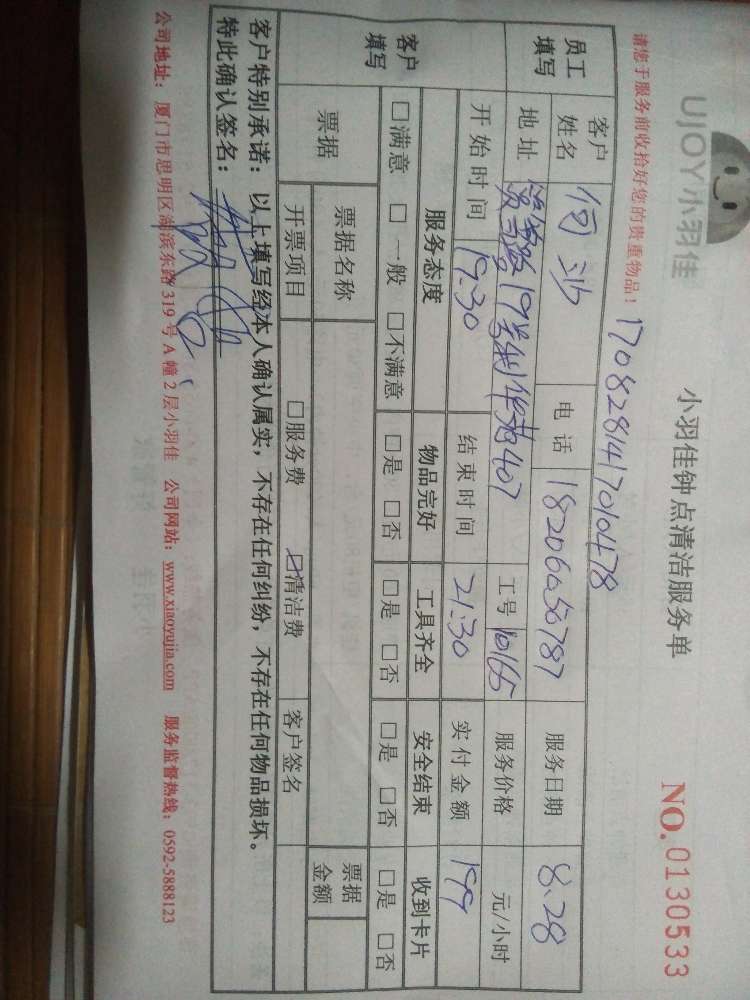 UJOY小羽佳
小羽佳钟点清洁服务单
NO. 0130533
请您于服务前收拾好您的贵重物品！
1708281417010478
员工填写 客户姓名 何 电话 18206050787 服务日期 8.28
地址 19 407 工号 10165 服务价格 元/小时
开始时间 19:30 结束时间 21:30 实付金额 199
客户填写 服务态度 物品完好 工具齐全 安全结束 收到卡片
□满意 □一般 □不满意 □是 □否 □是 □否 □是 □否 □是 □否
票据 票据名称 票据金额
开票项目 □服务费 ☑清洁费 客户签名
客户特别承诺：以上填写经本人确认属实，不存在任何纠纷，不存在任何物品损坏。
特此确认签名：
公司地址：厦门市思明区湖滨东路319号A幢2层小羽佳 公司网站：www.xiaoyujia.com 服务监督热线：0592-5888123